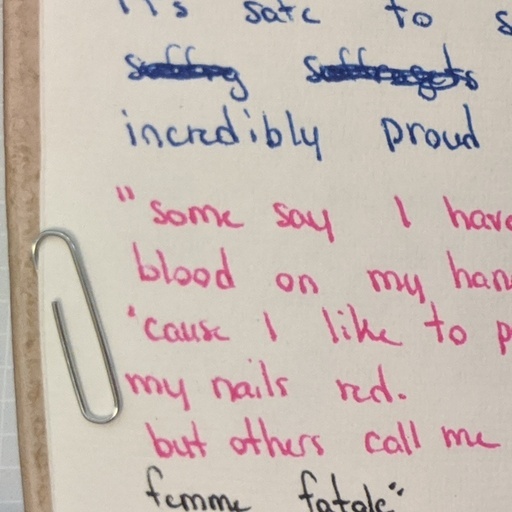 it's safe to s
suffrag suffragets
incredibly proud
"some say I have
blood on my han
'cause I like to p
my nails red.
but others call me
femme fatale"